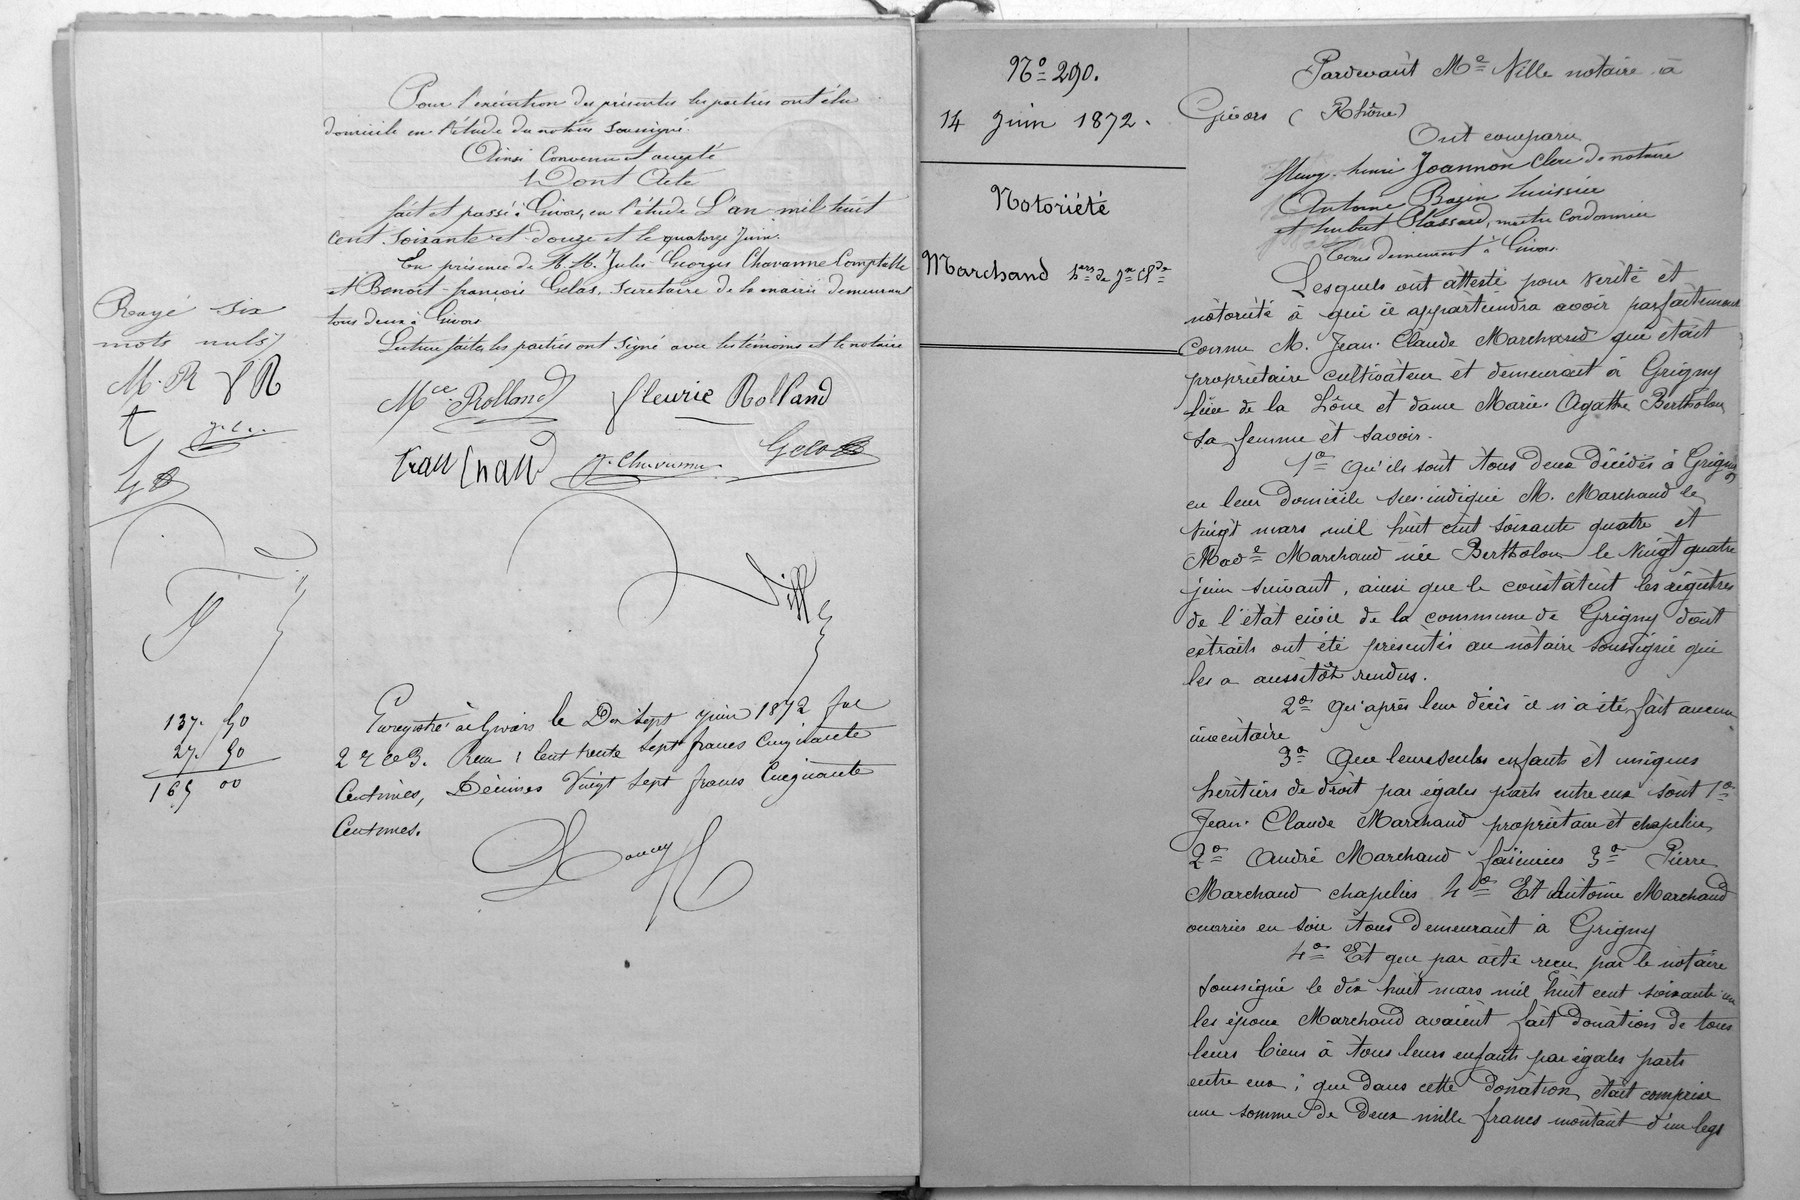 Pour l'exécution des présentes les parties ont élu
domicile en l'étude du notaire soussigné.
Ainsi convenu et accepté
Dont Acte
fait et passé à Givors, en l'étude L'an mil huit
cent soixante et douze et le quatorze Juin.
En présence de M.M. Jules Georges Chavanne Comptable
et Benoît-françois Gelas, Secrétaire de la mairie demeurant
tous deux à Givors
Lecture faite, les parties ont signé avec les témoins et le notaire
Rayé six
mots nuls
M. R f R
Mce Rolland fleurie Rolland
J. Chavanne Gelas
Ville
Enregistré à Givors le Dix Sept Juin 1872 fol
Reçu : Cent trente Sept francs Cinquante
Centimes, Décimes Vingt Sept francs Cinquante
Centimes.
137. 50
27. 50
165 00
No 290.
14 Juin 1872.
Notoriété
Marchand hers de Jn Cde
Pardevant Me Ville notaire à
Givors (Rhône)
Ont comparu
fleury-henri Joannon Clerc de notaire
Antoine Bazin huissier
et humbert Plassard, maître Cordonnier
Tous demeurant à Givors
Lesquels ont attesté pour vérité et
notoriété à qui il appartiendra avoir parfaitement
connu M. Jean-Claude Marchand qui était
propriétaire cultivateur et demeurait à Grigny
lieu de la Lône et dame Marie-Agathe Bertholon
sa femme et savoir.
1o Qu'ils sont tous deux décédés à Grigny
en leur domicile sus-indiqué M. Marchand le
vingt mars mil huit cent soixante quatre et
Made Marchand née Bertholon le vingt quatre
juin suivant, ainsi que le constatent les registres
de l'état civil de la commune de Grigny dont
extraits ont été présentés au notaire soussigné qui
les a aussitôt rendus.
2o Qu'après leur décès il n'a été fait aucun
inventaire
3o Que leurs seuls enfants et uniques
héritiers de droit par égales parts entre eux sont 1o
Jean-Claude Marchand propriétaire et chapelier
2o André Marchand 3o Pierre
Marchand chapelier 4o Et Antoine Marchand
ouvrier en soie tous demeurant à Grigny
4o Et que par acte reçu par le notaire
soussigné le dix huit mars mil huit cent soixante-un
les époux Marchand avaient fait donation de tous
leurs biens à tous leurs enfants par égales parts
entre eux ; que dans cette donation était comprise
une somme de deux mille francs montant d'un legs